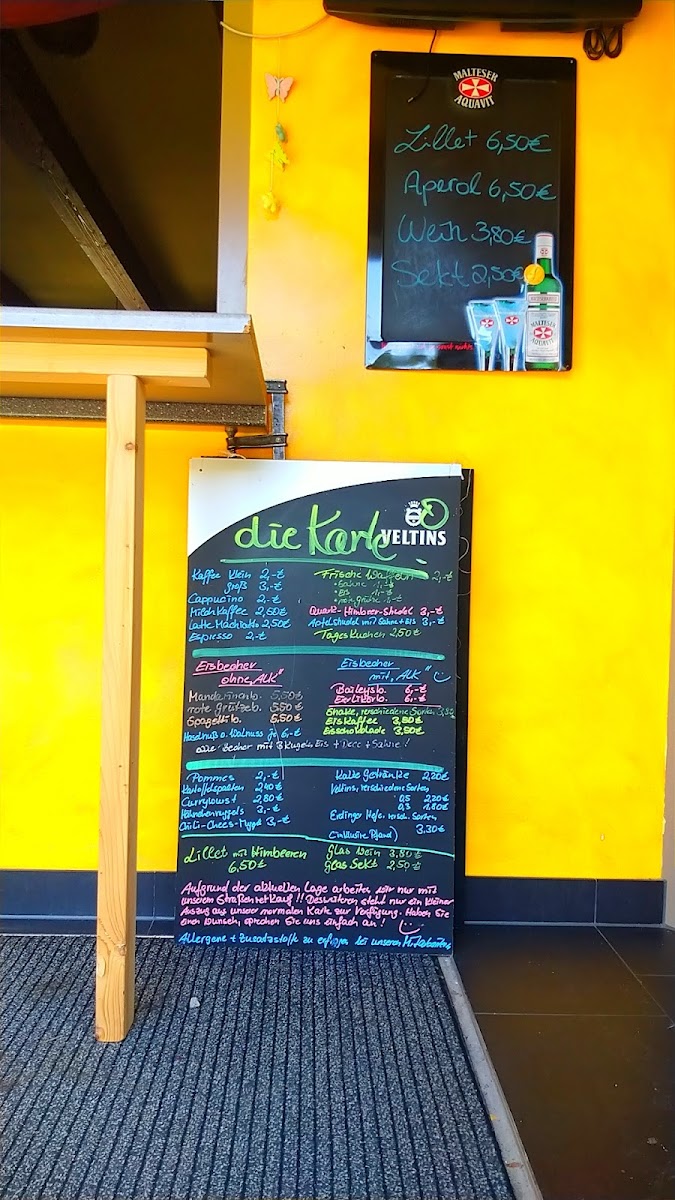 MALTESER
AQUAVIT
Lillet 6,50€
Aperol 6,50€
Wein 3,80€
Sekt 2,50€
MALTESER
AQUAVIT
die Karte
VELTINS
Kaffee klein 2,-€
groß 3,-€
Cappucino 2,-€
Milchkaffee 2,50€
Latte Machiatto 2,50€
Espresso 2,-€
Frische Waffeln 2,-€
• Sahne 1,-€
• Eis 1,-€
• rote Grütze 1,-€
Quark-Himbeer-Strudel 3,-€
Apfelstrudel mit Sahne + Eis 3,-€
Tageskuchen 2,50€
Eisbecher
ohne „ALK"
Mandarinenb. 5,50€
rote grützeb. 5,50€
Spagettib. 5,50€
Haselnuß o. Walnuss 6,-€
Eisbecher
mit „ALK"
Baileysb. 6,-€
Eierlikörb. 6,-€
Shake, verschiedene Sorten 3,50
Eiskaffee 3,50€
Eisschokolade 3,50€
alle Becher mit 3 Kugeln Eis + Deco + Sahne!
Pommes 2,-€
Kartoffelspalten 2,40€
Currywurst 2,80€
Hähnchennuggets 3,-€
Chili-Chees-Nugget 3,-€
Kalte Getränke 2,20€
Veltins, verschiedene Sorten
0,5 2,20€
0,3 1,80€
Erdinger Hefe, versch. Sorten
3,30€
(inklusive Pfand)
Lillet mit Himbeeren
6,50€
Glas Wein 3,80€
Glas Sekt 2,50€
Aufgrund der aktuellen Lage arbeiten wir nur mit
unserem Straßenverkauf!! Desweiteren steht nur ein kleiner
Auszug aus unserer normalen Karte zur Verfügung. Haben Sie
einen Wunsch, sprechen Sie uns einfach an!
Allergene + Zusatzstoffe zu erfragen bei unseren Mitarbeitern